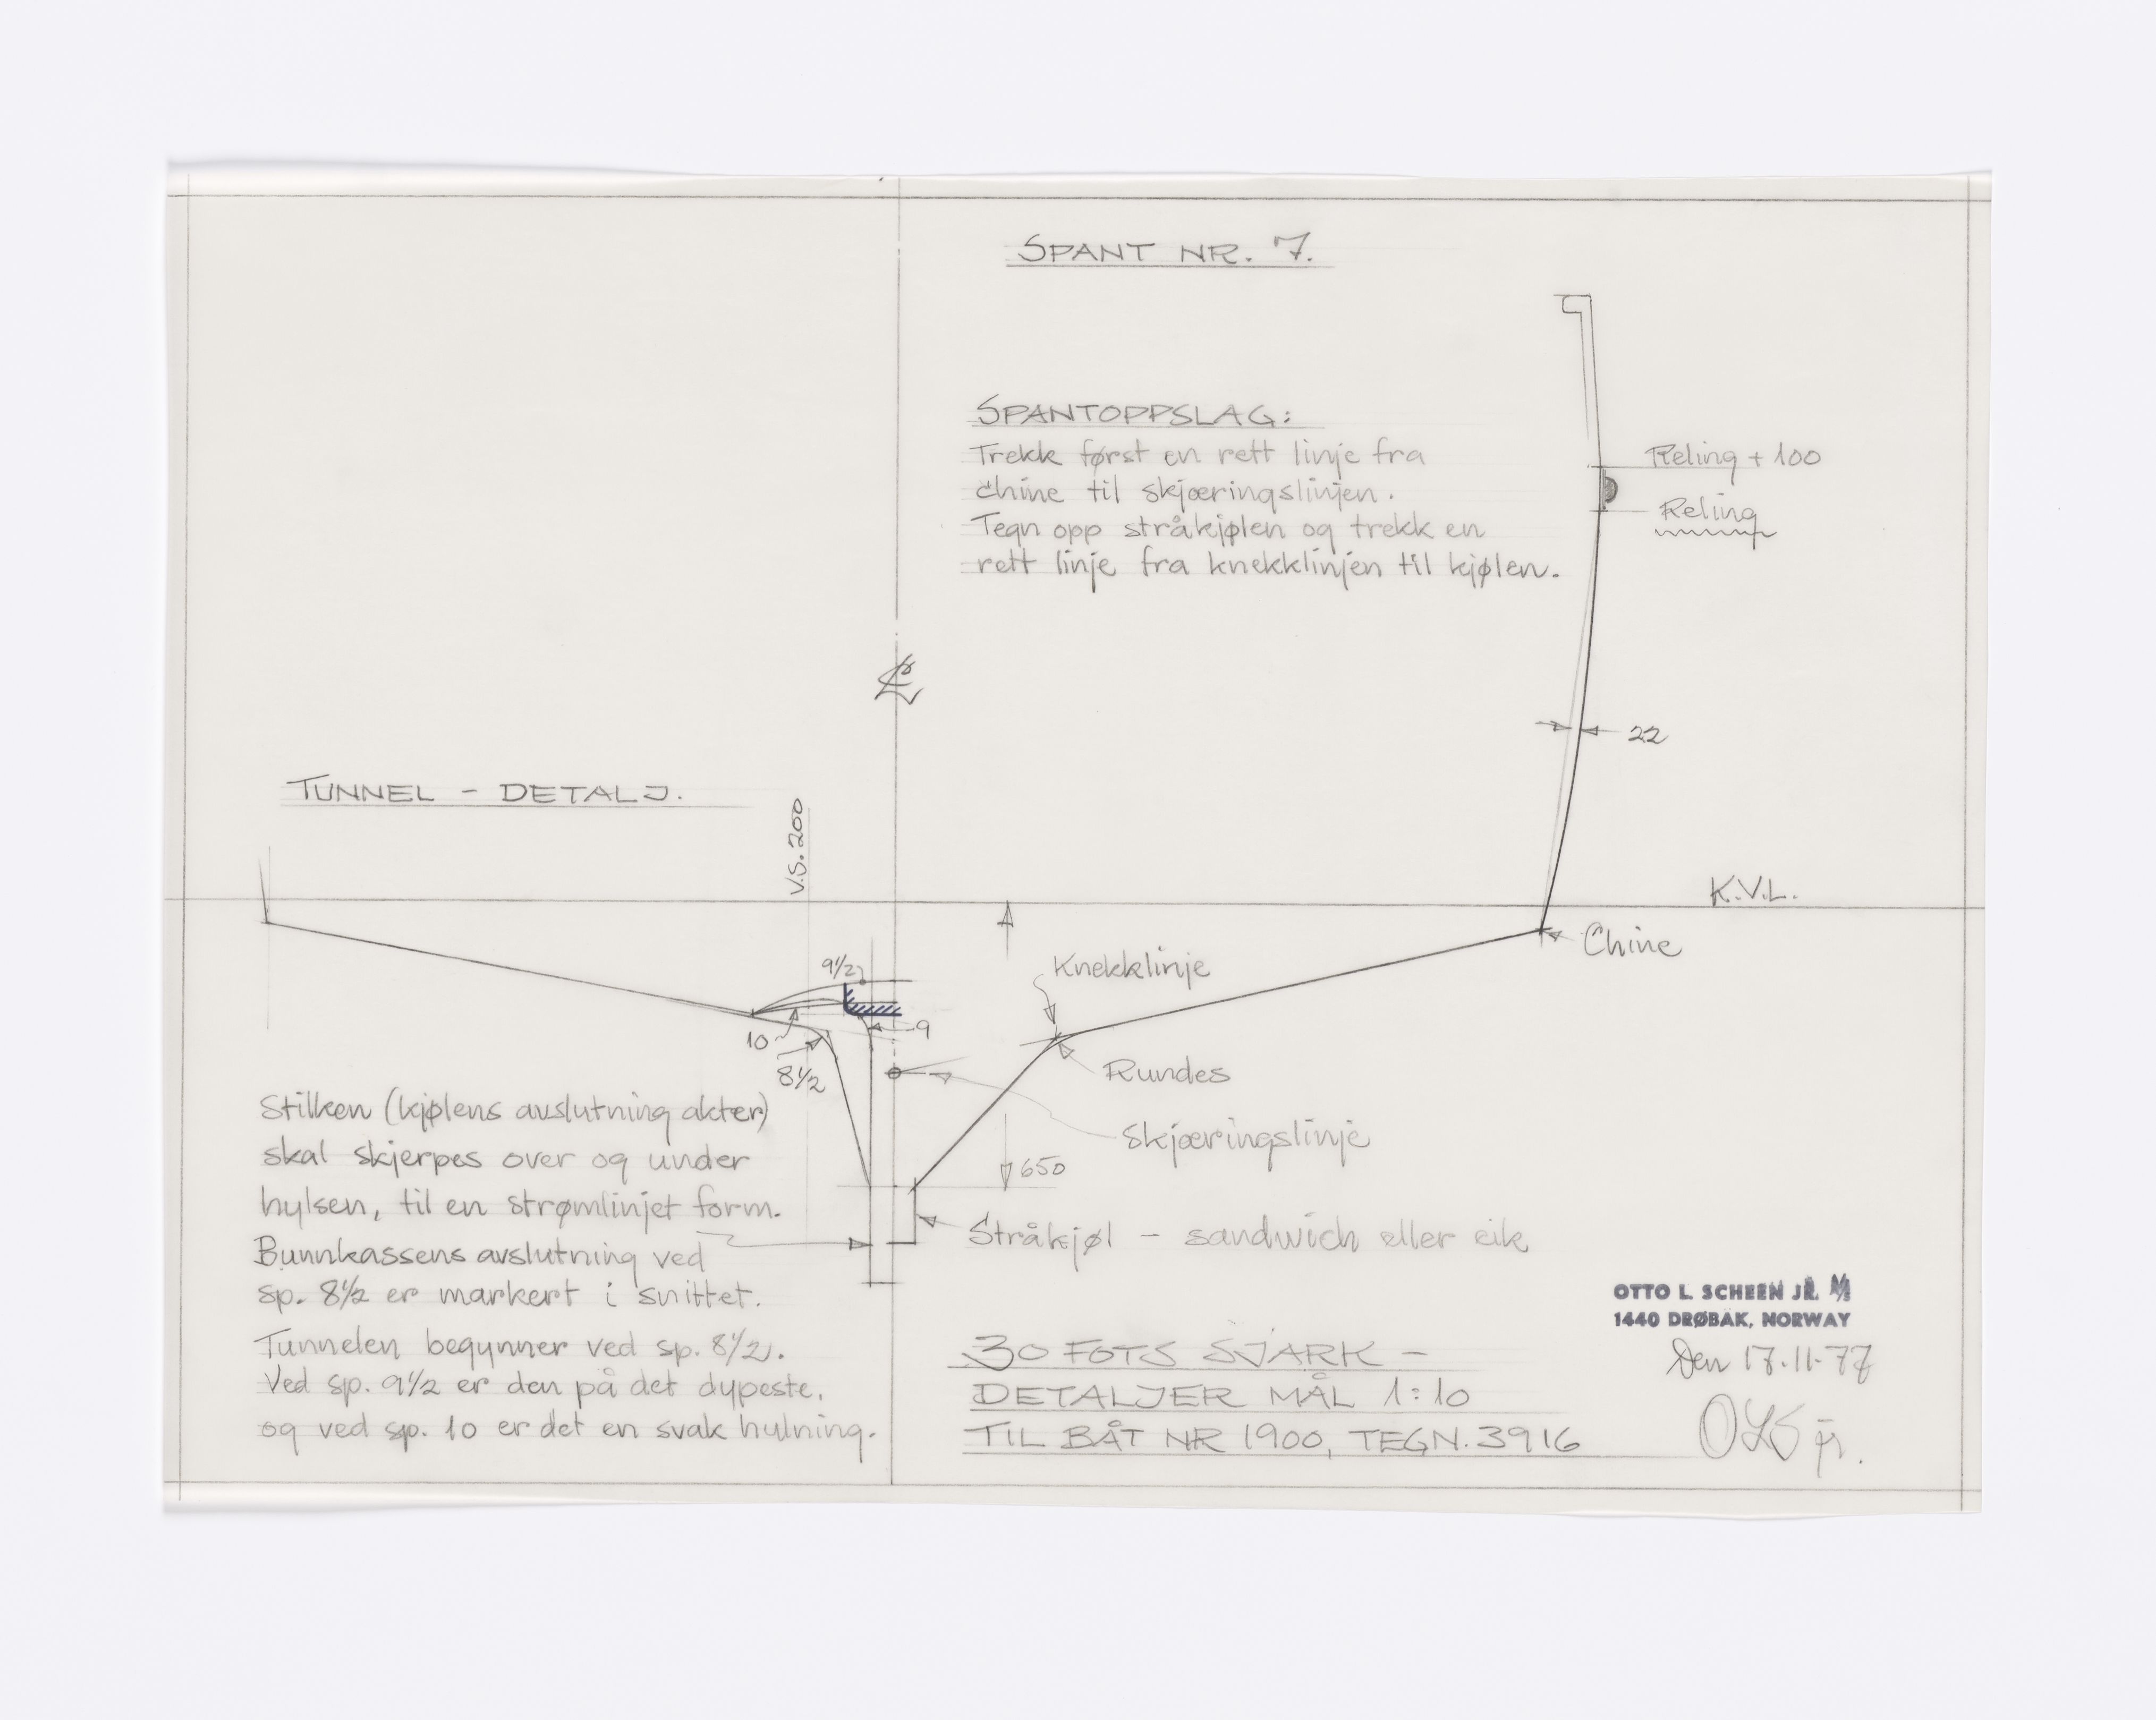 SPANT NR. 7.
SPANTOPPSLAG:
Trekk først en rett linje fra
chine til skjæringslinjen.
Tegn opp stråkjølen og trekk en
rett linje fra knekklinjen til kjølen.
Reling + 100
Reling
22
TUNNEL - DETALJ.
V.S. 200
K.V.L.
Chine
Knekklinje
9½
10
9
8½
Rundes
Skjæringslinje
650
Stråkjøl - sandwich eller eik
Stilken (kjølens avslutning akter)
skal skjerpes over og under
hylsen, til en strømlinjet form.
Bunnkassens avslutning ved
sp. 8½ er markert i snittet.
Tunnelen begynner ved sp. 8½.
Ved sp. 9½ er den på det dypeste,
og ved sp. 10 er det en svak hulning.
30 FOTS SJARK -
DETALJER MÅL 1:10
TIL BÅT NR 1900, TEGN. 3916
OTTO L. SCHEEN JR. A/S
1440 DRØBAK, NORWAY
Den 17.11.77
OLS jr.